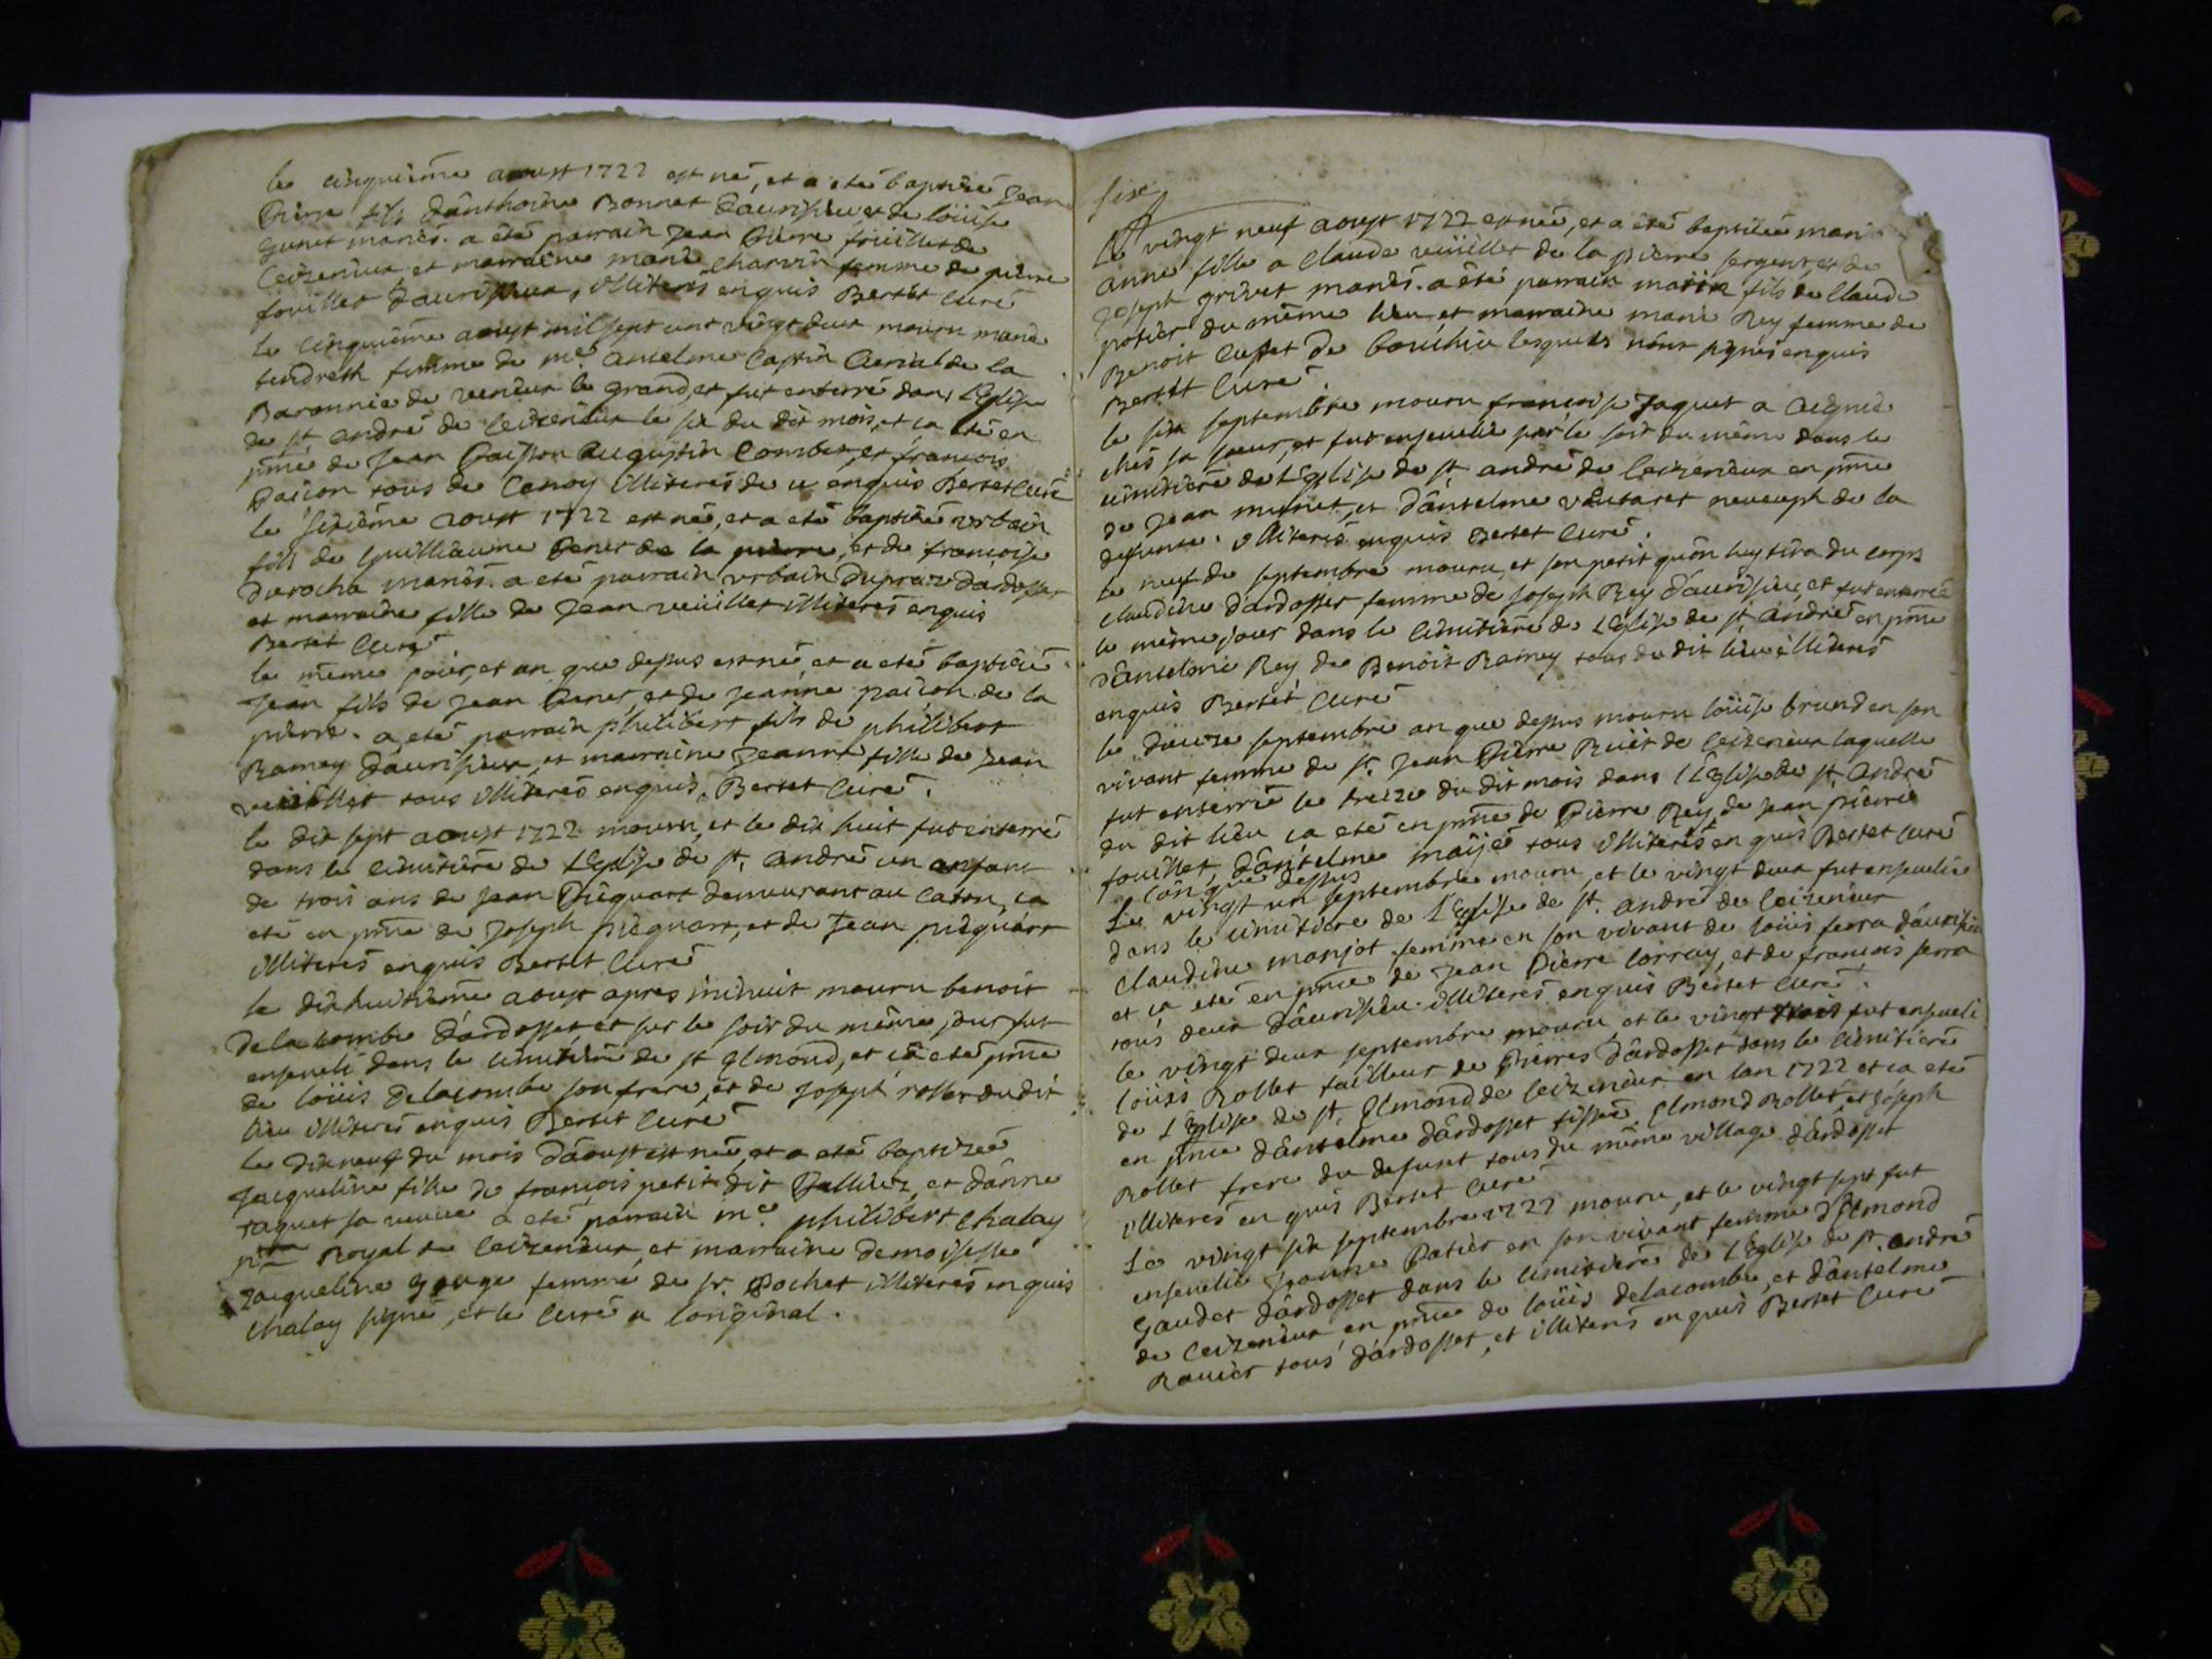 le cinquiême aoust 1722 est né, et a eté baptisé Jean
Pierre fils d'anthoine Bonnet d'aurisieu et de loüise
Junet mariés. a été parrain Jean Pierre fouillet de
Ceizerieux et marraine marie Charvin femme de pierre
fouillet d'aurisieux, illiterés enquis Bertet Curé
le cinquiême aoust mil sept cent vingt deux mouru marie
tendreth femme de me anselme Captin de la
Baronnie de le grand, et fut enterré dans l'Eglise
de st andré de Ceizerieux le six du dit mois, et ca eté en
pñce de Jean Paisson Augustin Combet, et françois
Paison tous de illiterés de ce enquis Bertet Curé
le sixiême aoust 1722 est né, et a eté baptisé urbain
fils de Guilliaume Penet de la pierre, et de françoise
Durocha mariés. a eté parrain urbain Dupraz d'ardosset
et marraine fille de Jean veüillet illiterés enquis
Bertet Curé
le même jour, et an que dessus est né, et a eté baptisé
Jean fils de Jean Penet, et de Jeanne paison de la
pierre. a eté parrain philibert fils de philibert
Ramey d'aurisieux, et marraine Jeanne fille de Jean
veüillet tous illiterés enquis, Bertet Curé.
le dix sept aoust 1722 mouru, et le dix huit fut enterré
dans le cimitiere de l'Eglise de st. andré un enfant
de trois ans de Jean Picquart demeurant au caton, ca
eté en pñce de Joseph picquart, et de Jean picquart
illiterés enquis Bertet Curé
le dixhuitiême aoust apres minuit mouru benoit
Delacombe d'ardosset, et sur le soir du même jour fut
enseveli dans le cimitiere de st Elmond, et ca eté pñce
de loüis Delacombe son frere, et de Joseph rollet du dit
lieu illiterés enquis Bertet Curé
le dixneuf du mois d'aoust est née, et a eté baptizée
Jacqueline fille de françois petit dit Jallier, et d'anne
Jaquet sa a eté parrain me. philibert Chalay
Royal de Ceizerieux, et marraine demoiselle
Jacqueline Gouge femme de sr. Pochet illiterés enquis
Chalay signé, et le Curé a loriginal.
six
Le vingt neuf aoust 1722 est née, et a été baptisée marie
anne fille a Claude veüillet de la pierre sergent, et de
Joseph grivet mariés. a été parrain fils de Claude
potier du même lieu, et marraine marie Rey femme de
Benoit Cusset de lesquels n'ont signés enquis
Bertet Curé.
le six septembre mouru françoise Jaquet a
chés sa soeur, et fut ensevelie sur le soir du même dans le
cimitiere de l'Eglise de st andré de Ceizerieux en pñce
de Jean munet, et d'antelme vautaret neveuph de la
defunte. illiterés enquis Bertet Curé.
le neuf de septembre mouru, et son petit qu'on luy tira du corps
claudine d'ardosset femme de Joseph Rey d'aurisieu, et fut enterrée
le même jour dans le cimitiere de l'Eglise de st. andré en pñce
d'antelme Rey, de Benoit Ramey tous du dit lieu illiterés
enquis Bertet Curé
le douze septembre an que dessus mouru loüise brund en son
vivant femme de sr. Jean Pierre Ruit de Ceizerieux laquelle
fut enterrée le treize du dit mois dans l'Eglise de st. andré
du dit lieu ca eté en pñce de Pierre Rey, de Jean pierre
fouillet, d'antelme maijé tous illiterés enquis Bertet Curé
l'an que dessus
Le vingt un septembre mouru, et le vingt deux fut ensevelie
dans le cimitiere de l'Eglise de st. andré de Ceizerieux
Claudine manjot femme en son vivant de loüis serra d'aurisieu
et ca eté en pñce de Jean Pierre lorray, et de françois serra
tous deux d'aurisieu illiterés enquis Bertet Curé.
le vingt deux septembre mouru et le vingt trois fut enseveli
loüis Rollet tailleur de Pierres d'ardosset dans le cimitiere
de l'Eglise de st Elmond de Ceizerieux en lan 1722 et ca eté
en pñce d'antelme d'ardosset Elmond Rollet et Joseph
Rollet frere du defunt tous du même village d'ardosset
illiterés enquis Bertet Curé
Le vingt six septembre 1722 mouru, et le vingt sept fut
ensevelie Jeanne Patier en son vivant femme d'Elmond
Gaudet d'ardosset dans le cimitiere de l'Eglise de st. andré
de Ceizerieux en pñce de loüis delacombe, et d'antelme
Ravier tous d'ardosset, et illiterés enquis Bertet Curé